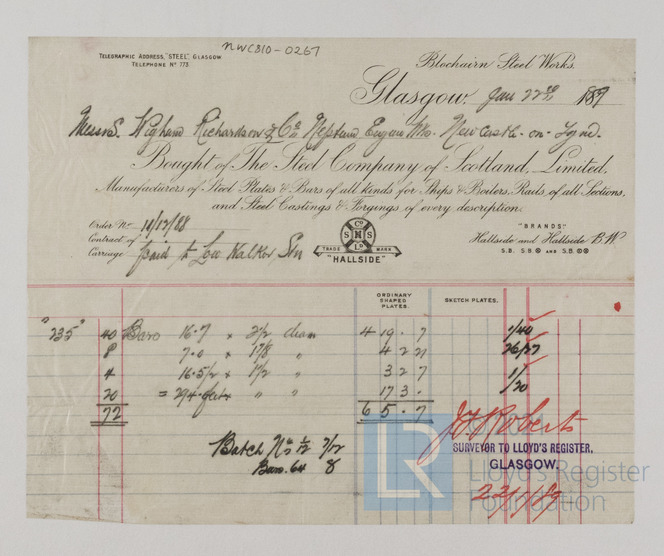 NWC810-0267
TELEGRAPHIC ADDRESS, "STEEL" GLASGOW
TELEPHONE Nº 773
Blochairn Steel Works.
Glasgow, Jan 22nd 1889
Messrs. Wigham Richardson & Co Neptune Engine Wks. Newcastle-on-Tyne.
Bought of The Steel Company of Scotland, Limited,
Manufacturers of Steel Plates & Bars of all kinds for Ships & Boilers, Rails of all Sections,
and Steel Castings & Forgings of every description.
Order No 18/12/88
Contract of
Carriage paid to Low Walker Stn
Co
S N S
LD
TRADE MARK
"HALLSIDE"
"BRANDS"
Hallside and Hallside B.W
S.B. S.B.⊗ AND S.B.⊗⊗
ORDINARY SHAPED PLATES.
SKETCH PLATES.
"235" 40 Bars 16.7 x 2½ diam 4 19. 7 1/40
8 7.0 x 1⅞ " 4 2 21 26/27
4 16.5½ x 1½ " 3 2 7 1/
20 = 294 feet " " 17 3. /20
72 6 5. 7
Batch No 1/12 7/12
Bars. 64 8
J J Roberts
SURVEYOR TO LLOYD'S REGISTER,
GLASGOW.
22/1/89
LR
Lloyd's Register
Foundation